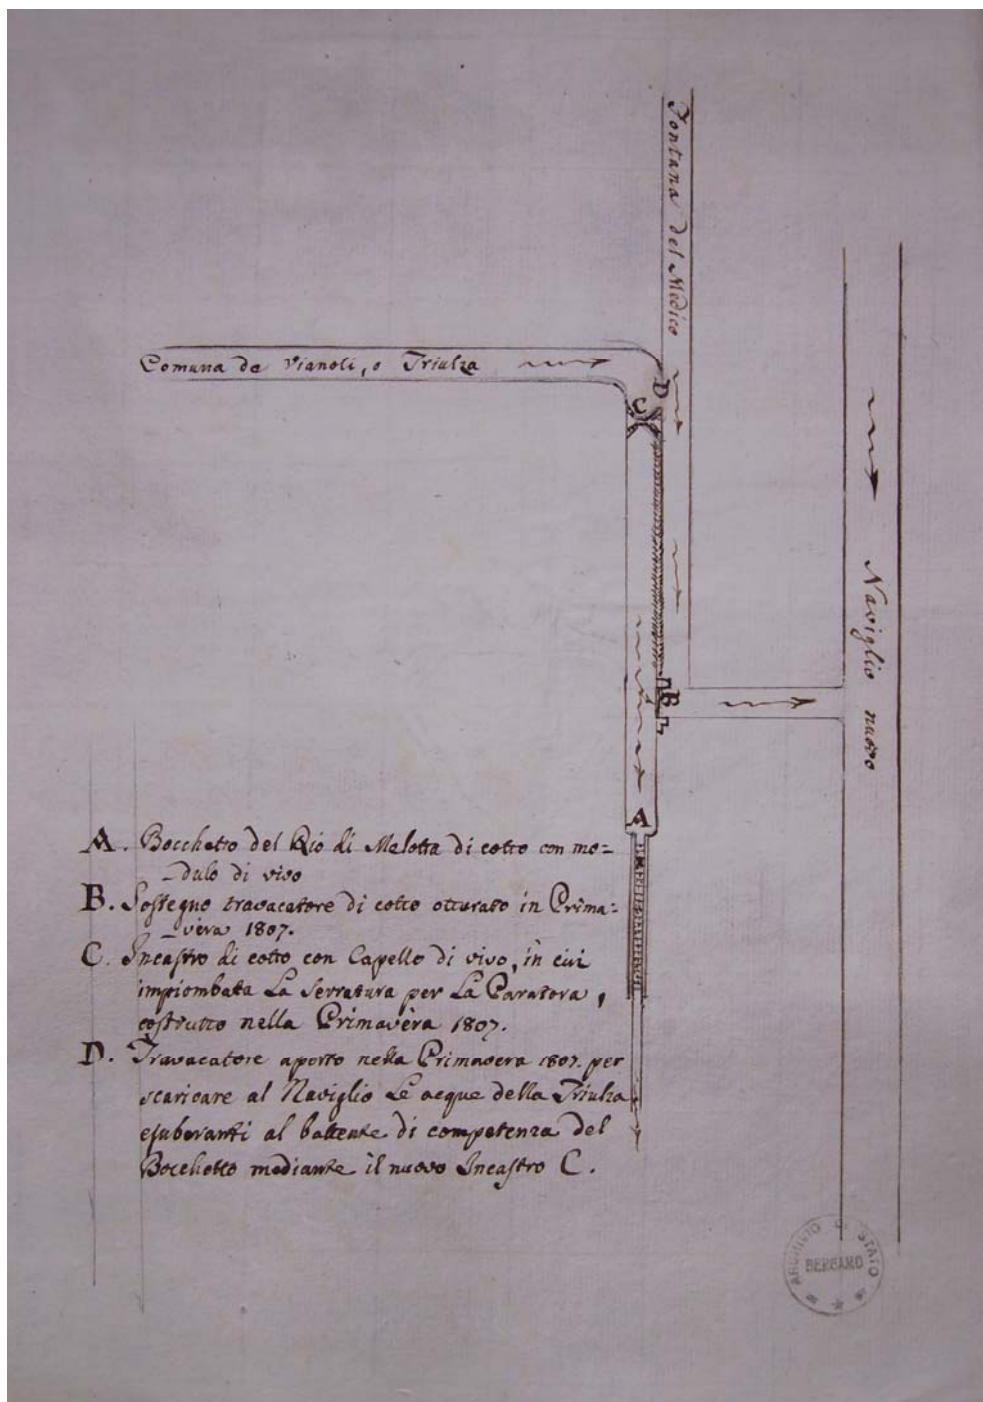 Fontana del Medico
Comuna de Vianoli, o Triulza
D
C
Naviglio nuovo
B
A
A. Bocchetto del Rio di Melotta di cotto con mo=
=dulo di vivo
B. Sostegno travacatore di cotto otturato in Prima=
=vera 1807.
C. Incastro di cotto con Capello di vivo, in cui
impiombata La Serratura per La Paratora,
costrutto nella Primavera 1807.
D. Travacatore aperto nella Primavera 1807. per
scaricare al Naviglio Le acque della Triulza
esuberanti al battente di competenza del
Bocchetto mediante il nuovo Incastro C.
ARCHIVIO DI STATO
BERGAMO